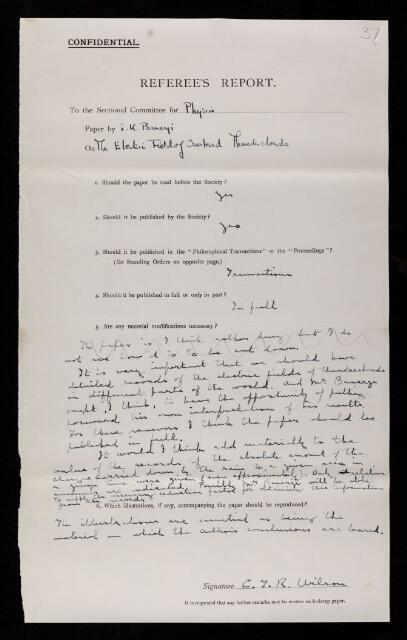 37
CONFIDENTIAL.
REFEREE'S REPORT.
To the Sectional Committee for Physics
Paper by S. K. Banerji
On The Electric Field of Overhead Thunderclouds
1. Should the paper be read before the Society?
Yes
2. Should it be published by the Society?
Yes
3. Should it be published in the "Philosophical Transactions" or the "Proceedings"?
(See Standing Orders on opposite page.)
Transactions
4. Should it be published in full or only in part?
In full
5. Are any material modifications necessary?
The paper is, I think, rather long, but I do
not see how it is to be cut down.
It is very important that we should have
detailed records of the electric fields of thunderclouds
in different parts of the world. And Mr Banerji
ought, I think, to have the opportunity of putting
forward his own interpretation of his results.
For these reasons I think the paper should be
published in full.
It would I think add materially to the
value of the records if the absolute amount of the
charge carried down by the rain to a given area in
a given time were given (even approximately). Only relative
amounts are indicated. Possibly Mr Banerji will be able
to supply the necessary reduction factor for obtaining this information
from the records.
6. Which illustrations, if any, accompanying the paper should be reproduced?
The illustrations are essential as being the
material on which the author's conclusions are based.
Signature C. T. R. Wilson
It is requested that any further remarks may be written on foolscap paper.